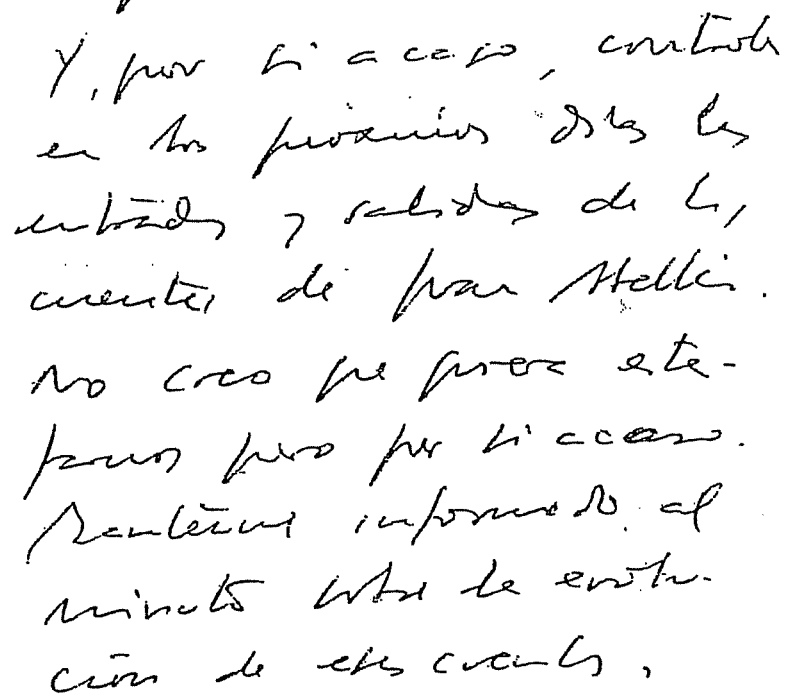 Y, por si acaso, controla
en los próximos días las
entradas y salidas de las
cuentas de Fran Stellis.
No creo que quiera esta-
farnos pero por si acaso.
Mantenme informado al
minuto sobre la evolu-
ción de estas cuentas.